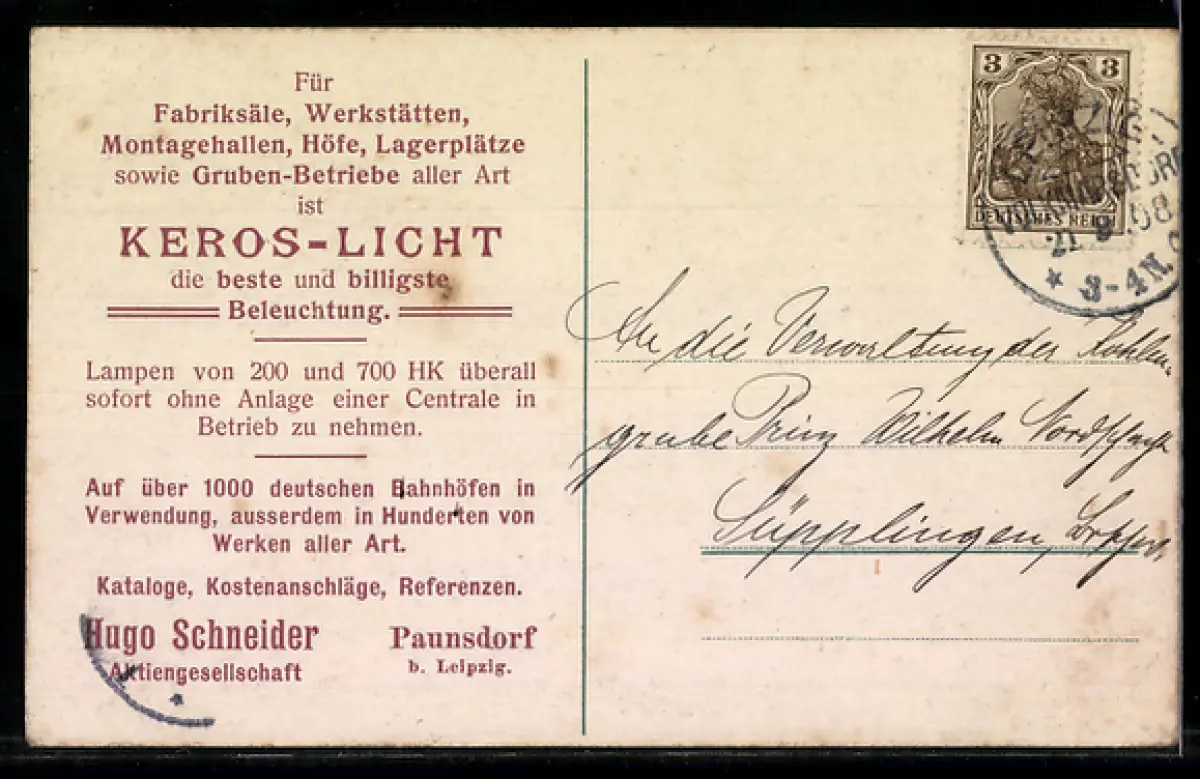 Für
Fabriksäle, Werkstätten,
Montagehallen, Höfe, Lagerplätze
sowie Gruben-Betriebe aller Art
ist
KEROS-LICHT
die beste und billigste
Beleuchtung.
Lampen von 200 und 700 HK überall
sofort ohne Anlage einer Centrale in
Betrieb zu nehmen.
Auf über 1000 deutschen Bahnhöfen in
Verwendung, ausserdem in Hunderten von
Werken aller Art.
Kataloge, Kostenanschläge, Referenzen.
Hugo Schneider Paunsdorf
Aktiengesellschaft b. Leipzig.
3 3
DEUTSCHES REICH
LEIPZIG
VOLKMARSDORF
21.9.08
* 3-4N.
An die Verwaltung der Kohlen
grube Prinz Wilhelm
Süpplingen